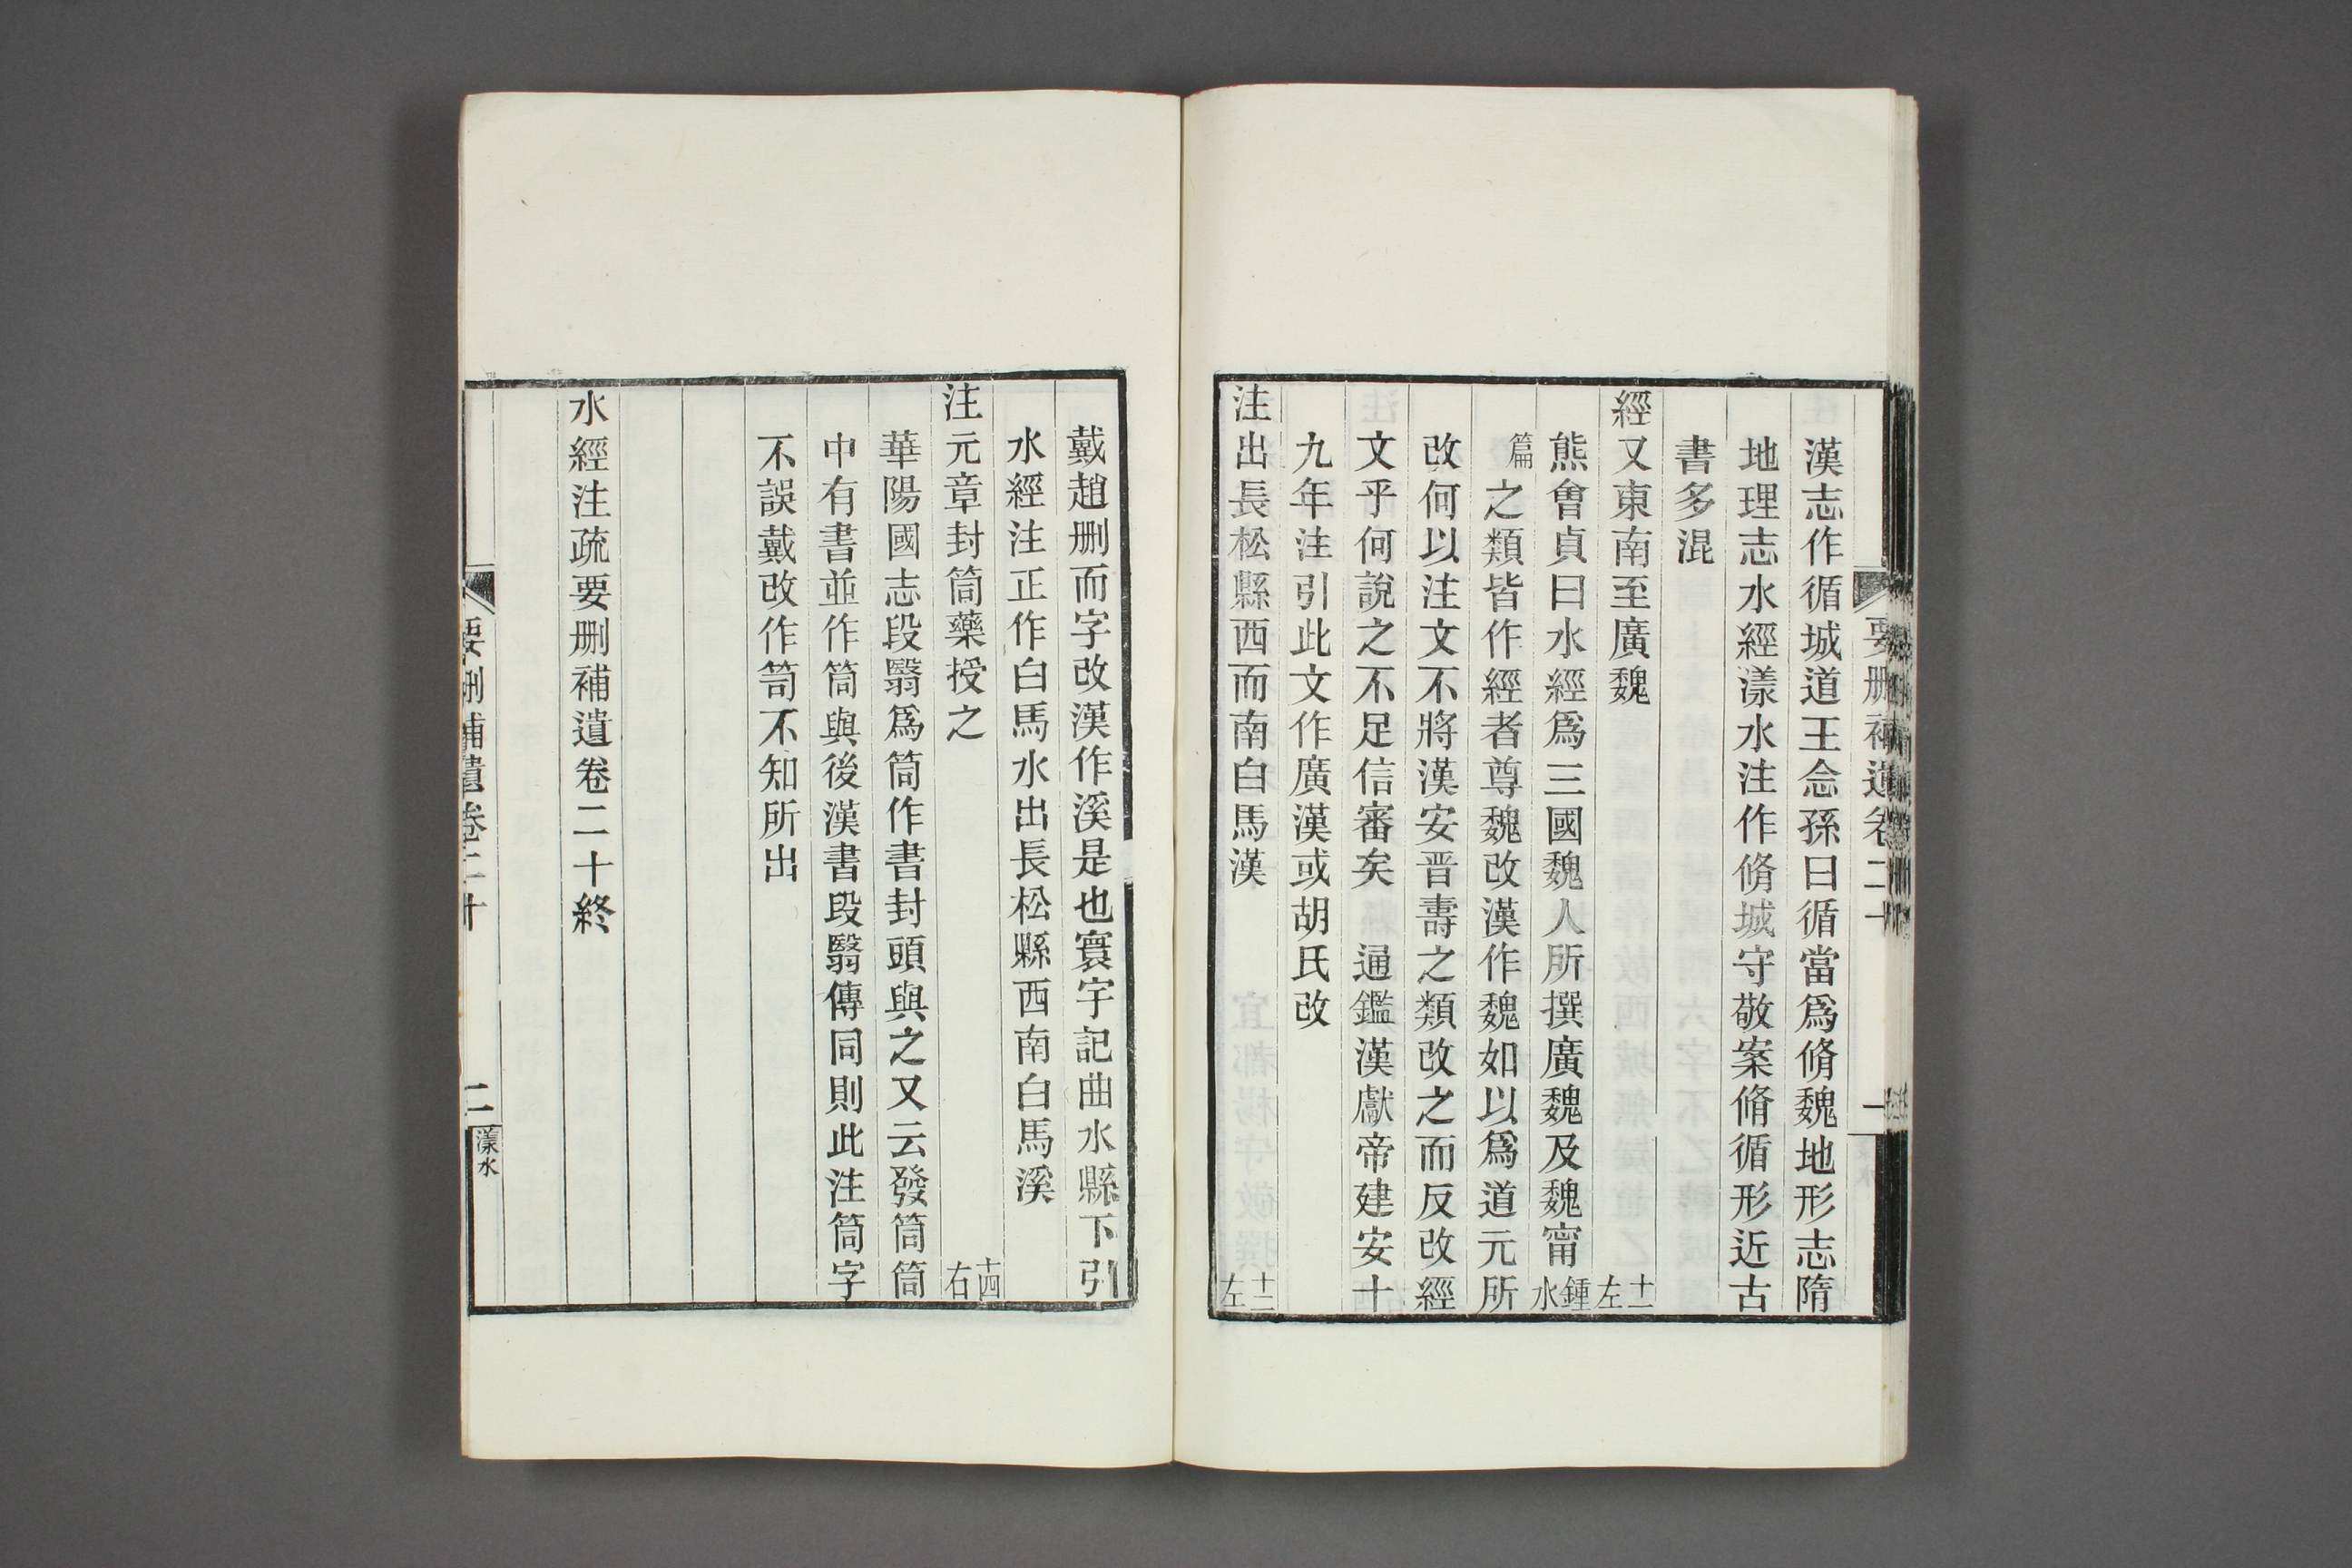 要刪補遺卷二十
一
漢志作循城道王念孫曰循當爲脩魏地形志隋
地理志水經漾水注作脩城守敬案脩循形近古
書多混
經又東南至廣魏 十一左
熊會貞曰水經爲三國魏人所撰廣魏及魏甯鍾水
篇之類皆作經者尊魏改漢作魏如以爲道元所
改何以注文不將漢安晋壽之類改之而反改經
文乎何說之不足信審矣 通鑑漢獻帝建安十
九年注引此文作廣漢或胡氏改
注出長松縣西而南白馬漢 十二左
戴趙刪而字改漢作溪是也寰宇記曲水縣下引
水經注正作白馬水出長松縣西南白馬溪
注元章封筒藥授之 十四右
華陽國志段翳爲筒作書封頭與之又云發筒筒
中有書並作筒與後漢書段翳傳同則此注筒字
不誤戴改作笥不知所出
水經注疏要刪補遺卷二十終
要刪補遺卷二十
二
漾水